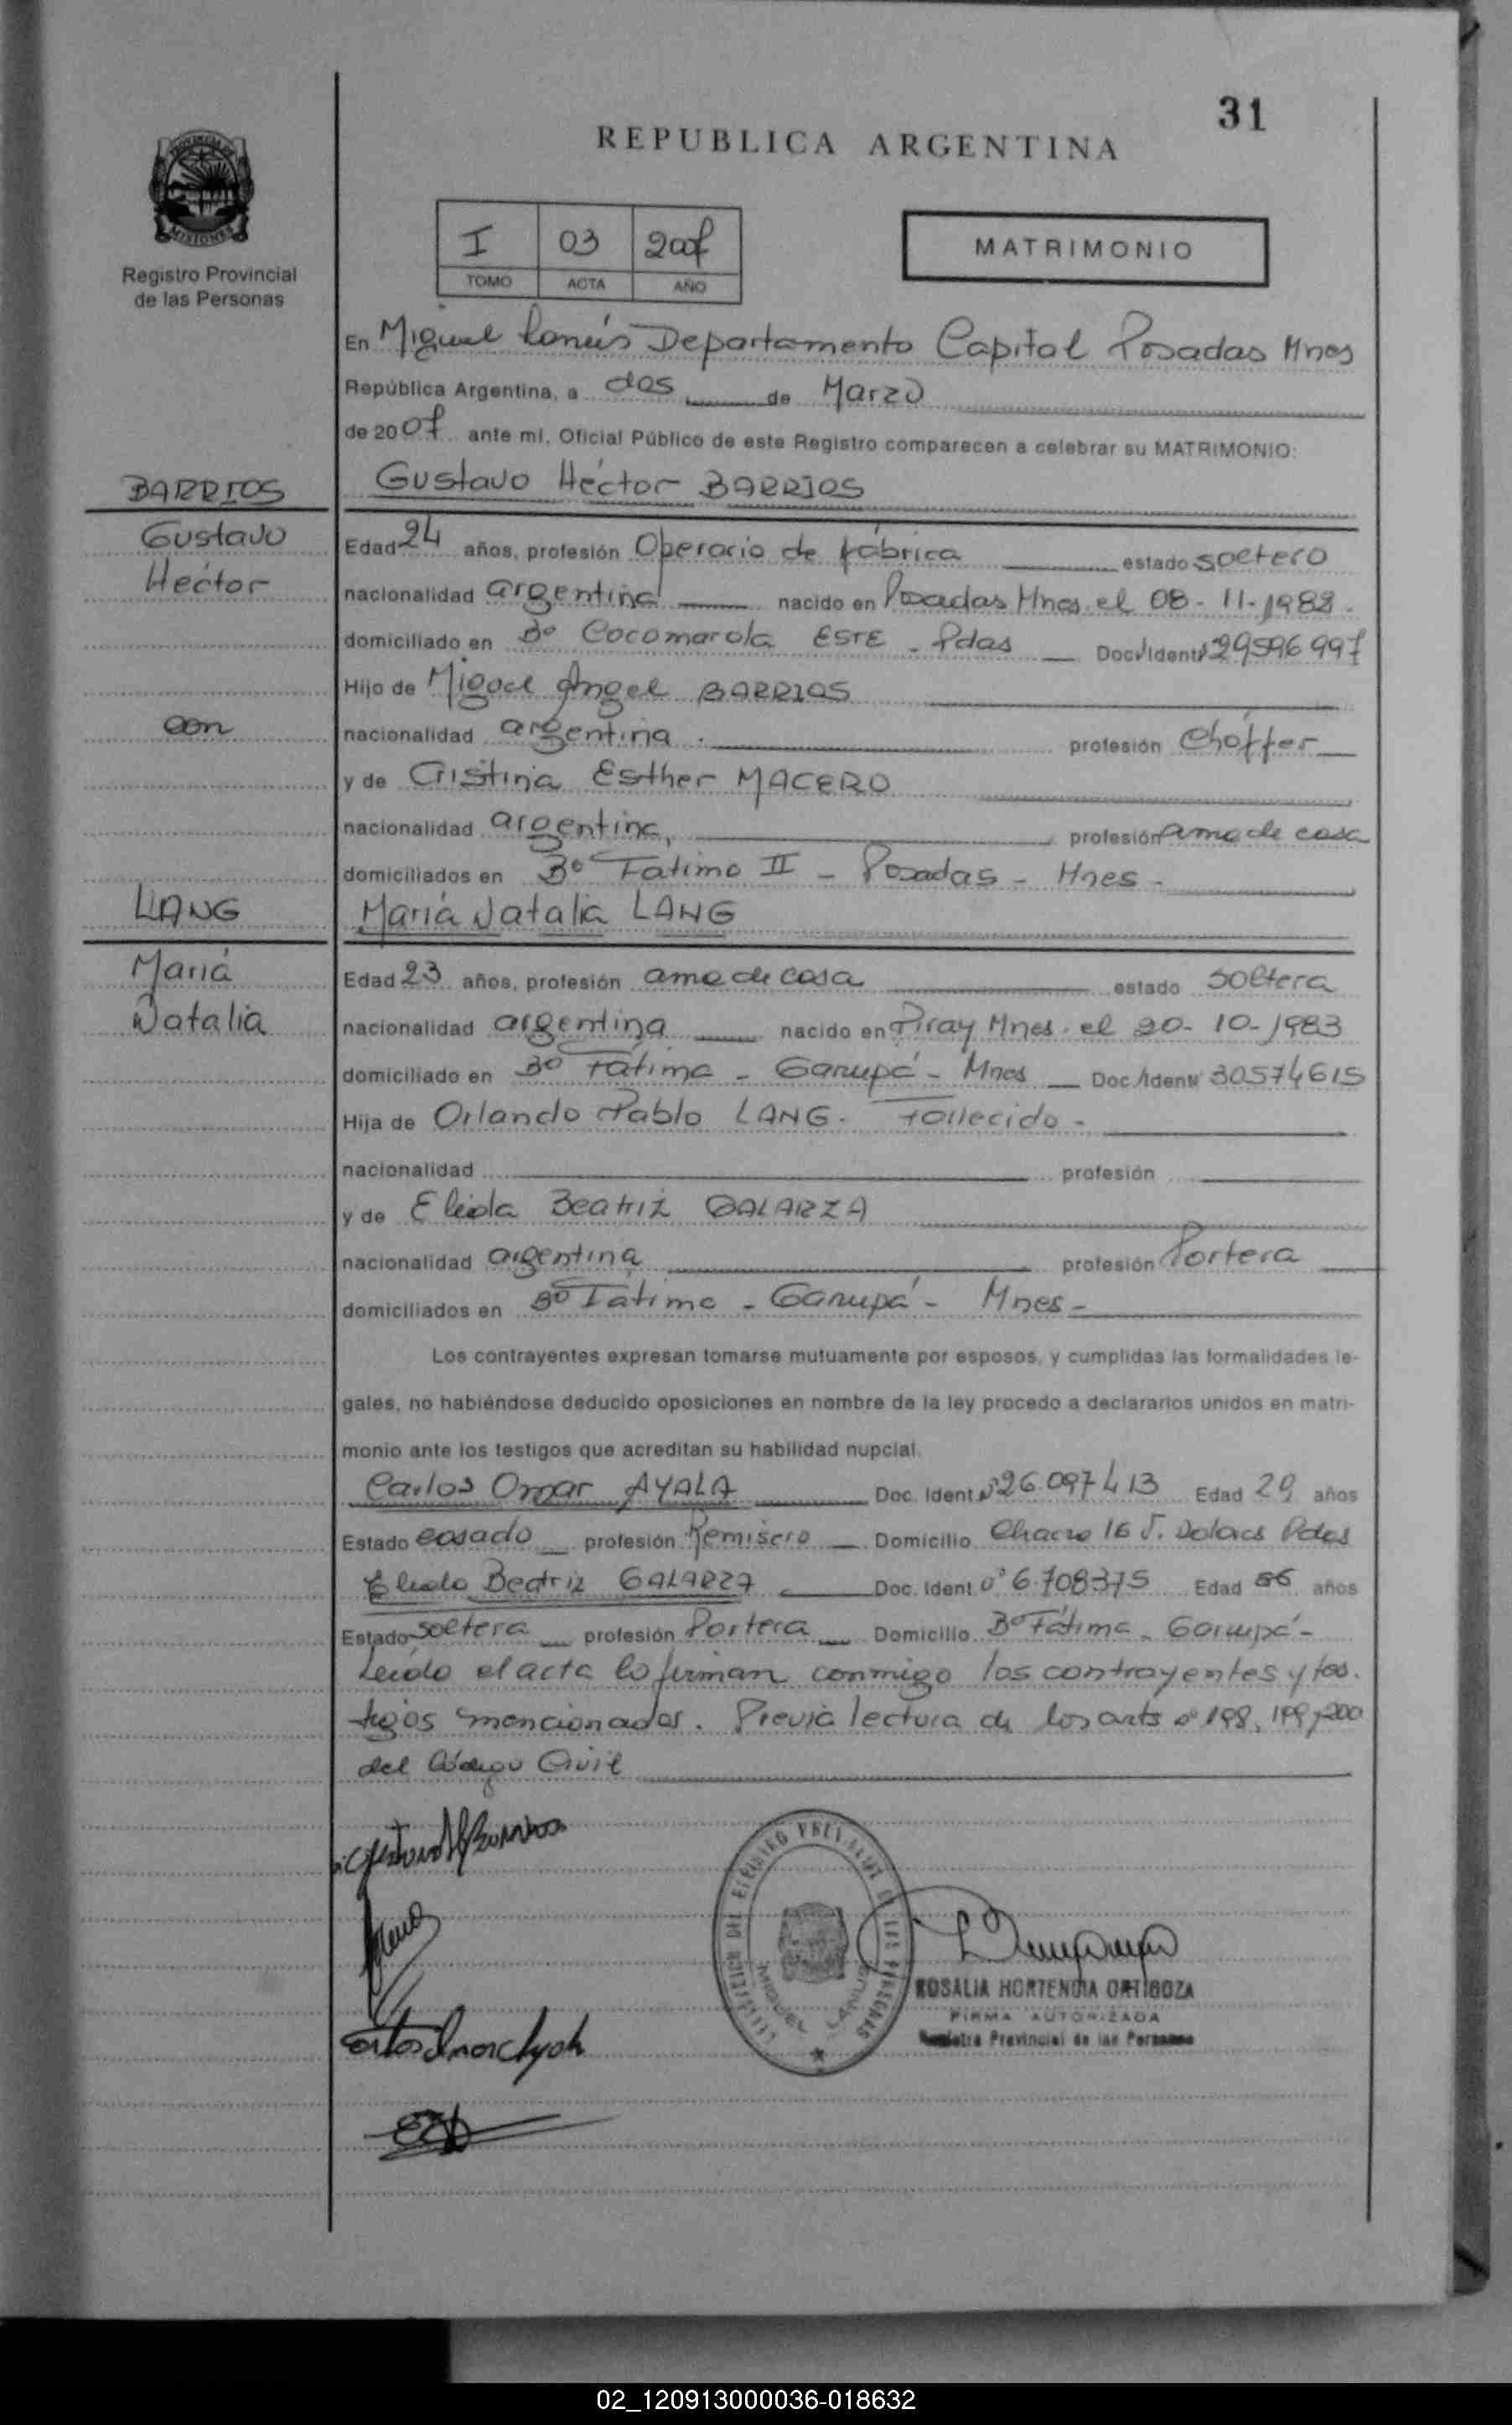 31
REPUBLICA ARGENTINA
PROVINCIA DE
MISIONES
Registro Provincial
de las Personas
I 03 2007
TOMO ACTA AÑO
MATRIMONIO
En Miguel Lanús Departamento Capital Posadas Mnes
República Argentina, a dos de Marzo
de 2007 ante mí, Oficial Público de este Registro comparecen a celebrar su MATRIMONIO:
BARRIOS
Gustavo
Héctor
con
LANG
María
Natalia
Gustavo Héctor BARRIOS
Edad 24 años, profesión Operario de fábrica estado soltero
nacionalidad argentina nacido en Posadas Mnes. el 08-11-1982.
domiciliado en Bº Cocomarola ESTE - Pdas Doc. Ident. 29596997
Hijo de Miguel Angel BARRIOS
nacionalidad argentina. profesión Chóffer
y de Cristina Esther MACERO
nacionalidad argentina, profesión ama de casa
domiciliados en Bº Fatima II - Posadas - Mnes -
María Natalia LANG
Edad 23 años, profesión ama de casa estado soltera
nacionalidad argentina nacido en Piray Mnes. el 20-10-1983
domiciliado en Bº Fátima - Garupá - Mnes Doc. Ident. 30574615
Hija de Orlando Pablo LANG. Fallecido -
nacionalidad profesión
y de Eleida Beatriz GALARZA
nacionalidad argentina profesión Portera
domiciliados en Bº Fátima - Garupá - Mnes -
Los contrayentes expresan tomarse mutuamente por esposos, y cumplidas las formalidades le-
gales, no habiéndose deducido oposiciones en nombre de la ley procedo a declararlos unidos en matri-
monio ante los testigos que acreditan su habilidad nupcial.
Carlos Omar AYALA Doc. Ident. 26.097413 Edad 29 años
Estado casado profesión Remisero Domicilio Chacra 16 Pdas
Beatriz GALARZA Doc. Ident. 6.708375 Edad 56 años
Estado soltera profesión Portera Domicilio Bº Fátima - Garupá -
Leído el acta lo firman conmigo los contrayentes y tes.
tigos mencionados. Previa lectura de los arts nº 198, 199 y 200
del Código Civil
MIGUEL LANUS
ROSALIA HORTENCIA ORTIGOZA
FIRMA AUTORIZADA
Registro Provincial de las Personas
02_120913000036-018632